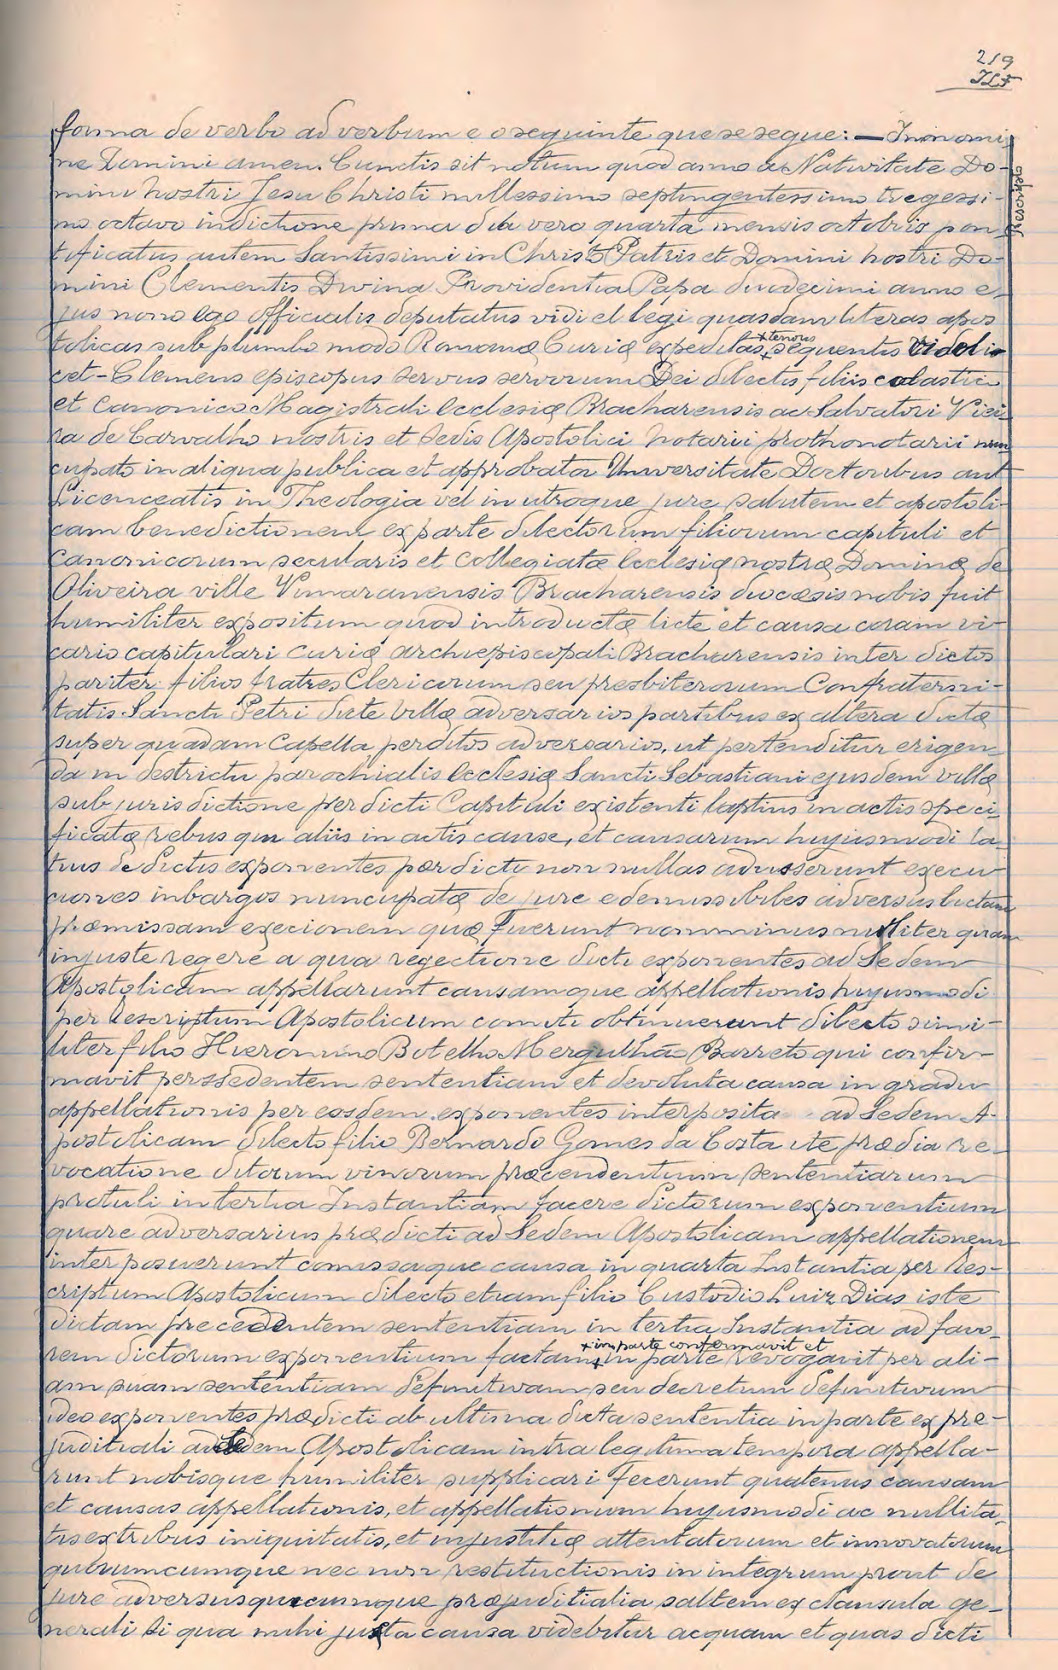 219
forma de verbo ad verbum e o seguinte que se segue: — In nomi
ne Domini amen. Cunctis sit notum quod anno a Nativitate Do-
mini nostri Jesu Christi millessimo septingentessimo tregessi-
mo octavo indictione prima die vero quarta mensis octobris pon
tificatus autem Santissimi in Christo Patris et Domini nostri Do-
mini Clementis Divina Providentia Papa duodecimi anno e-
jus nono ego officialis deputatus vidi et legi quasdam literas apos
+ tenoris
tolicas sub plumbo modo Romanæ Curiæ expeditas + sequentis videli
cet - Clemens episcopus servus servorum Dei dilectis filiis colastico
et canonico Magistrali Ecclesiæ Bracharensis ac Salvatori Viei
ra de Carvalho nostris et sedis Apostolici notarii prothonotarii nun
cupato in aliqua publica et approbata Universitate Doctoribus aut
Licenceatis in Theologia vel in utroque jure salutem et apostoli-
cam benedictionem ex parte dilectorum filiorum capituli et
canonicorum secularis et collegiatæ Ecclesiæ nostræ Dominæ de
Oliveira ville Vimaranensis Bracharensis diocesis nobis fuit
humiliter expositum quod introductæ licte et causa coram vi-
cario capitulari curiæ archiepiscopali Bracharensis inter dictos
pariter filios fratres Clericorum seu presbiterorum Confraterni-
tatis Sancti Petri dicte villæ adversarios partibus ex altera dictæ
super quadam Capella perditos adversarios, ut pertenditur erigen
da in destrictu parochialis Ecclesiæ Sancti Sebastiani ejusdem villæ
sub jurisdictione per dicti Capituli existenti laptius in actis speci
ficatæ rebus qui aliis in actis cause, et causarum hujusmodi la-
tius dedictis exponentes pœrdicti non nullas aduserunt execu
ciones inbargos nuncupatæ de jure edemissibiles adversus lictam
præmissam execionem quæ fuerunt nomminus nulliter quam
injuste regere a qua regectione dicti exponentes ad Sedem
Apostolicam appellarunt causamque appellationis hujusmodi
per Rescriptum Apostolicum comiti obtinuerunt dilecto simi-
liter filio Hieronimo Botelho Mergulhão Barreto qui confir-
mavit perssedentem sententiam et devoluta causa in gradu
appellationis per eosdem exponentes interposita ad Sedem A-
postolicam dilecto filio Bernardo Gomes da Costa ite prædia re-
vocatione ditorum vinorum præcendentium sententiarum
protuli in tertia Instantiam facere dictorum exponentium
quare adversarius prædicti ad Sedem Apostolicam appellationem
inter posuerunt comissaque causa in quarta Instantia per Res-
criptum Apostolicum dilecto etiam filio Custodio Luiz Dias iste
dictam precedentem sententiam in tertia Instantia ad favo-
+ in parte confirmavit et
rem dictorum exponentium factam + in parte revogavit per ali-
am suam sententiam definitivam seu decretum definitivum
ideo exponentes prædicti ab ultima dicta sententia in parte ex pre-
juditiali ad Sedem Apostolicam intra legitima tempora appella-
runt nobisque humiliter supplicari fecerunt quatenus causam
et causas appellationis, et appellationum hujusmodi ac nullita-
tis extribus iniquitatis, et injustitiæ attentatorum et innovatorum
quorumcumque nec non restituctionis in integrum prout de
jure adversus quicumque præjuditialia saltem ex clausula ge-
nerali si qua mihi justa causa videbitur acquam et quas dicti
Rescripto